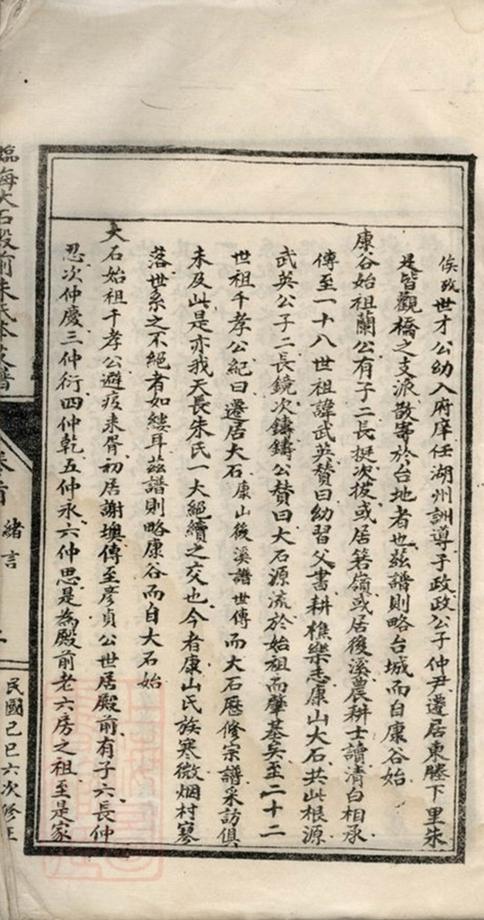 俟攷世才公幼入府庠任湖州訓導子政政公子仲尹遷居東塍下里朱
是皆觀橋之支派散寄於台地者也茲譜則略台城而自康谷始
康谷始祖蘭公有子二長挺次拔或居箬嶺或居後溪農耕士讀清白相承
傳至一十八世祖諱武英贊曰幼習父書耕樵樂志康山大石共此根源
武英公子二長鏡次鑄鑄公贊曰大石源流於始祖而肇基矣至二十二
世祖千孝公紀曰遷居大石康山後溪譜世傳而大石歷修宗譜采訪俱
未及此是亦我天長朱氏一大絕續之交也今者康山氏族寒微烟村寥
落世系之不絕者如縷耳茲譜則略康谷而自大石始
大石始祖千孝公避疫來胥初居謝墺傳至彥貞公世居殿前有子六長仲
忍次仲慶三仲衍四仲乾五仲永六仲思是為殿前老六房之祖至是家
臨海大石殿前朱氏宗譜
卷首
緒言
民國己巳六次修正